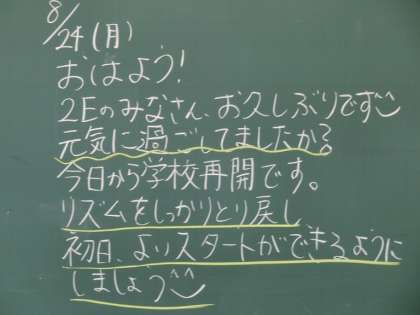 8/24(月)
おはよう!
2Eのみなさん、お久しぶりです
元気に過ごしてましたか?
今日から学校再開です。
リズムをしっかりとり戻し
初日、よいスタートができるように
しましょう^^